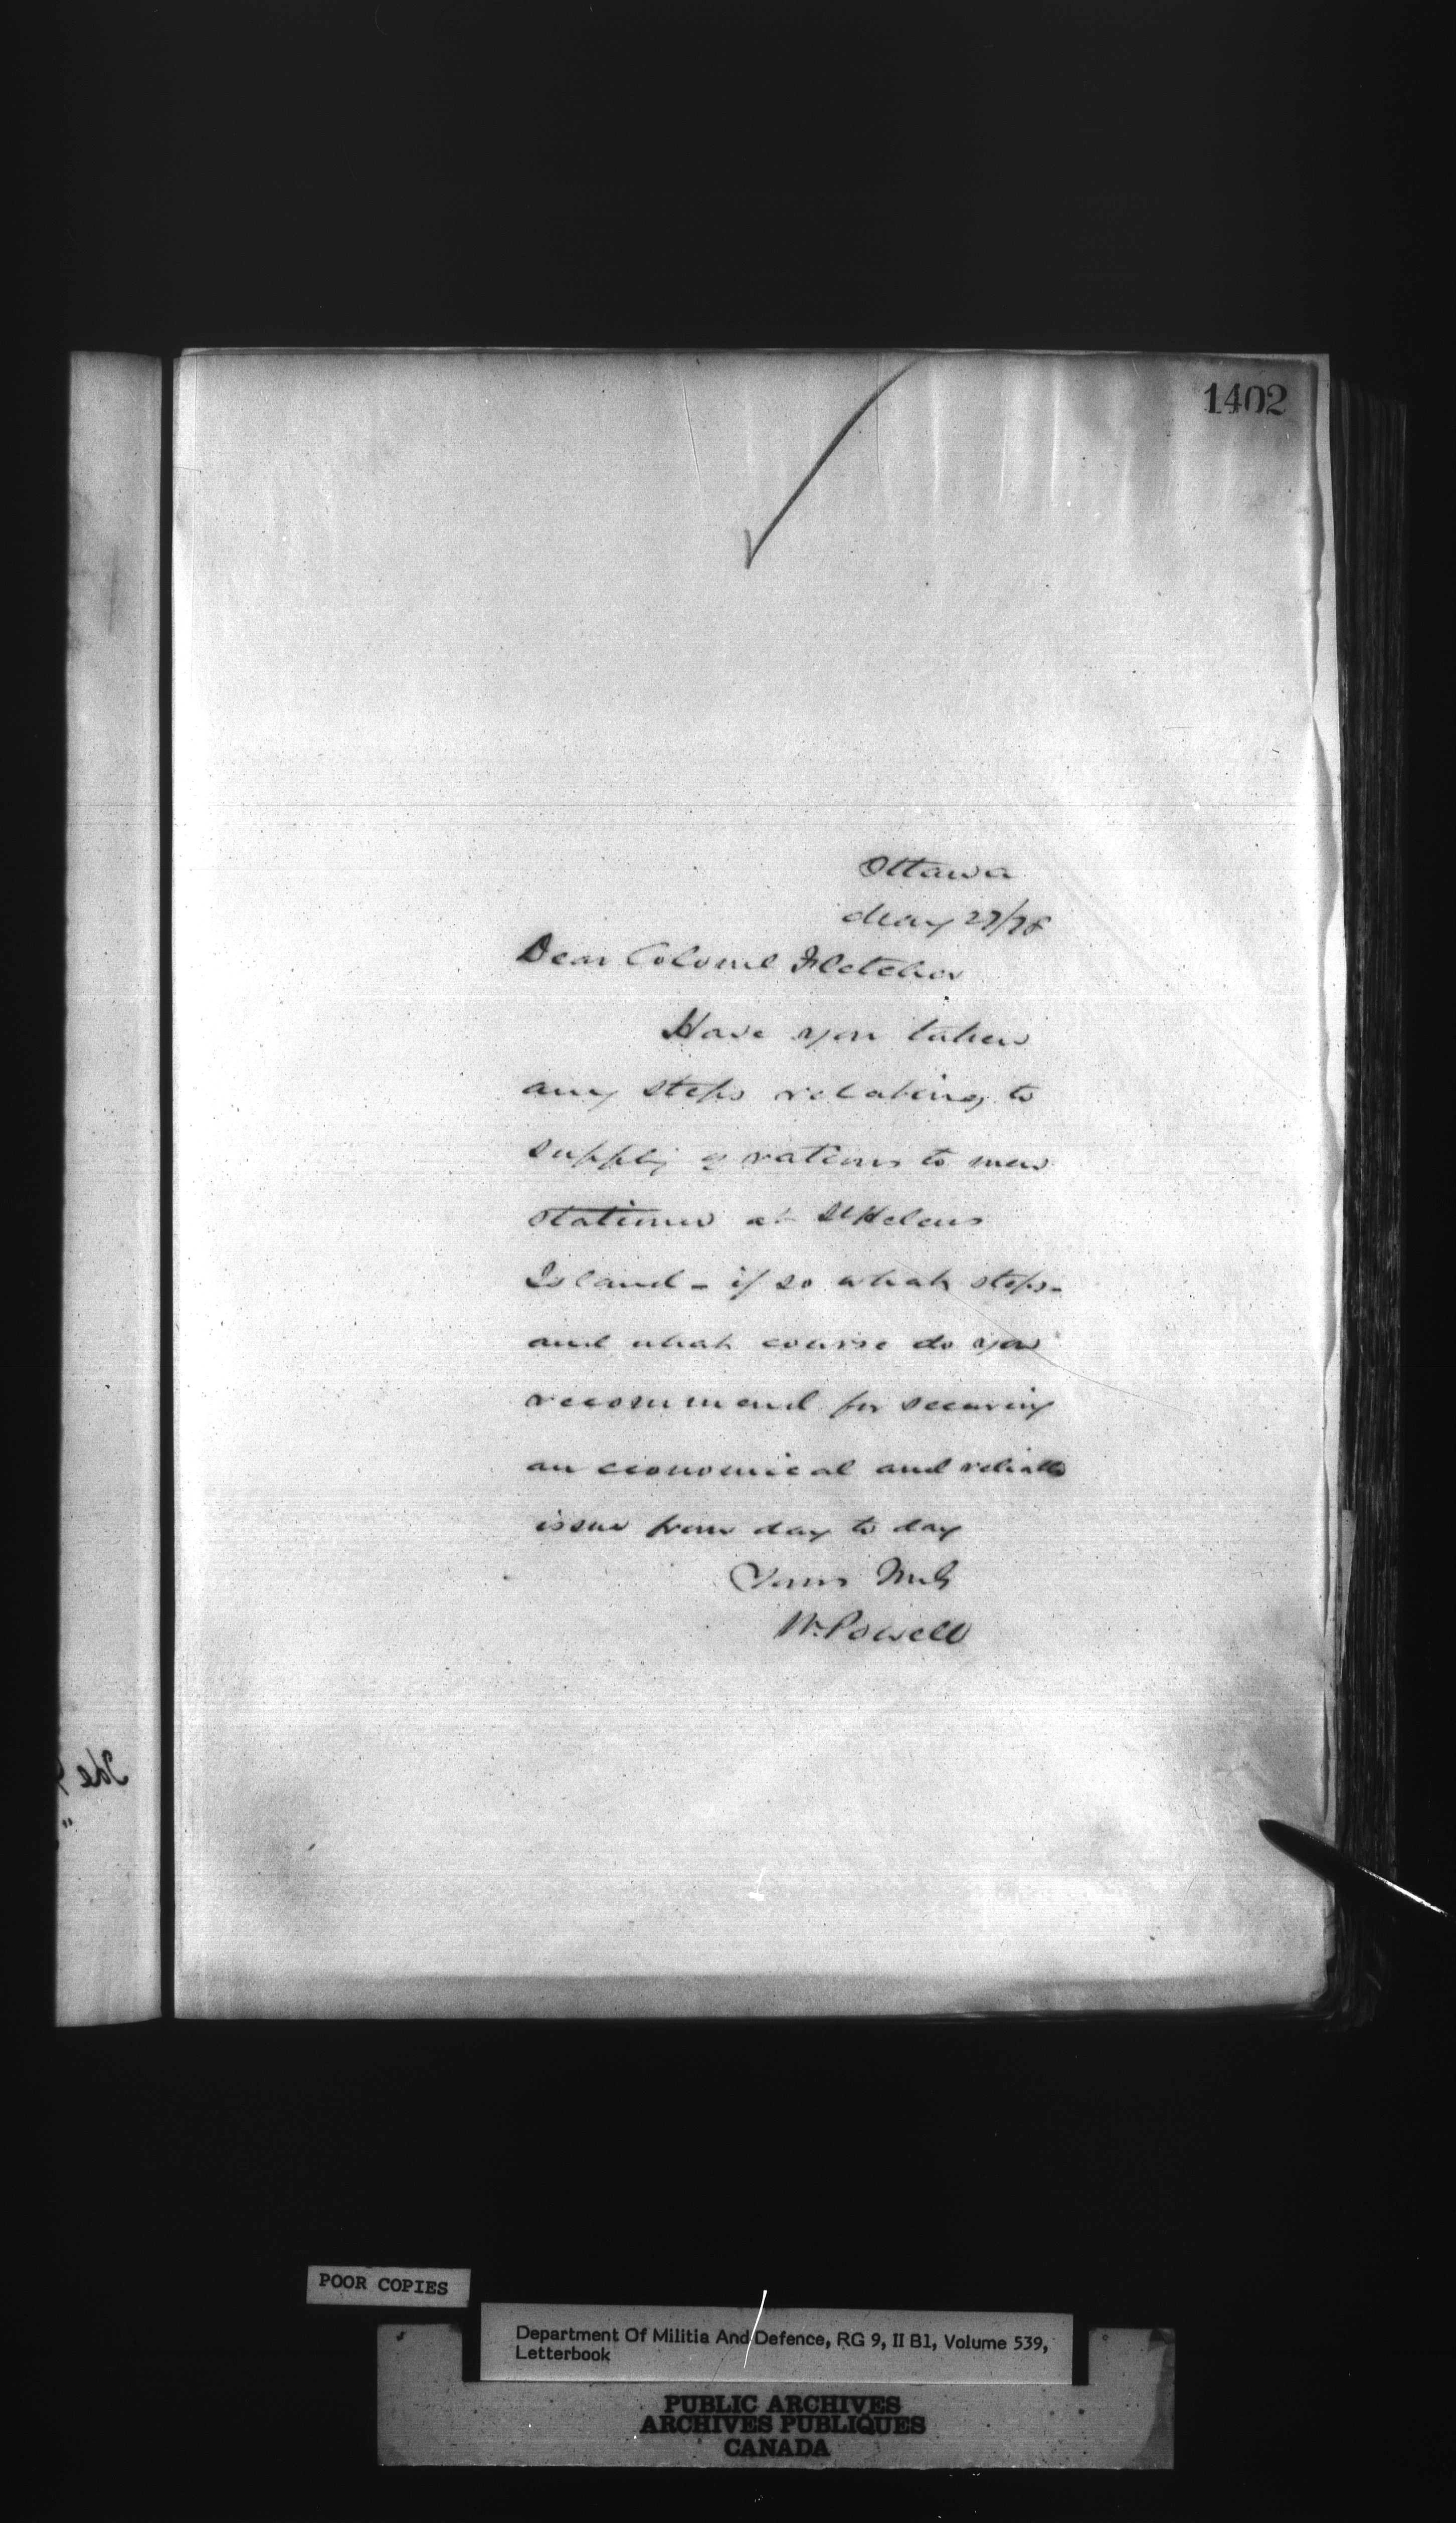 1402
Ottawa
May 27/78
Dear Colonel Fletcher
Have you taken
any steps relating to
supply of rations to men
stationed at St Helens
Island - if so what steps -
and what course do you
recommend for securing
an economical and reliable
issue from day to day
Yours truly
W. Powell
The
POOR COPIES
Department Of Militia And Defence, RG 9, II B1, Volume 539,
Letterbook
PUBLIC ARCHIVES
ARCHIVES PUBLIQUES
CANADA